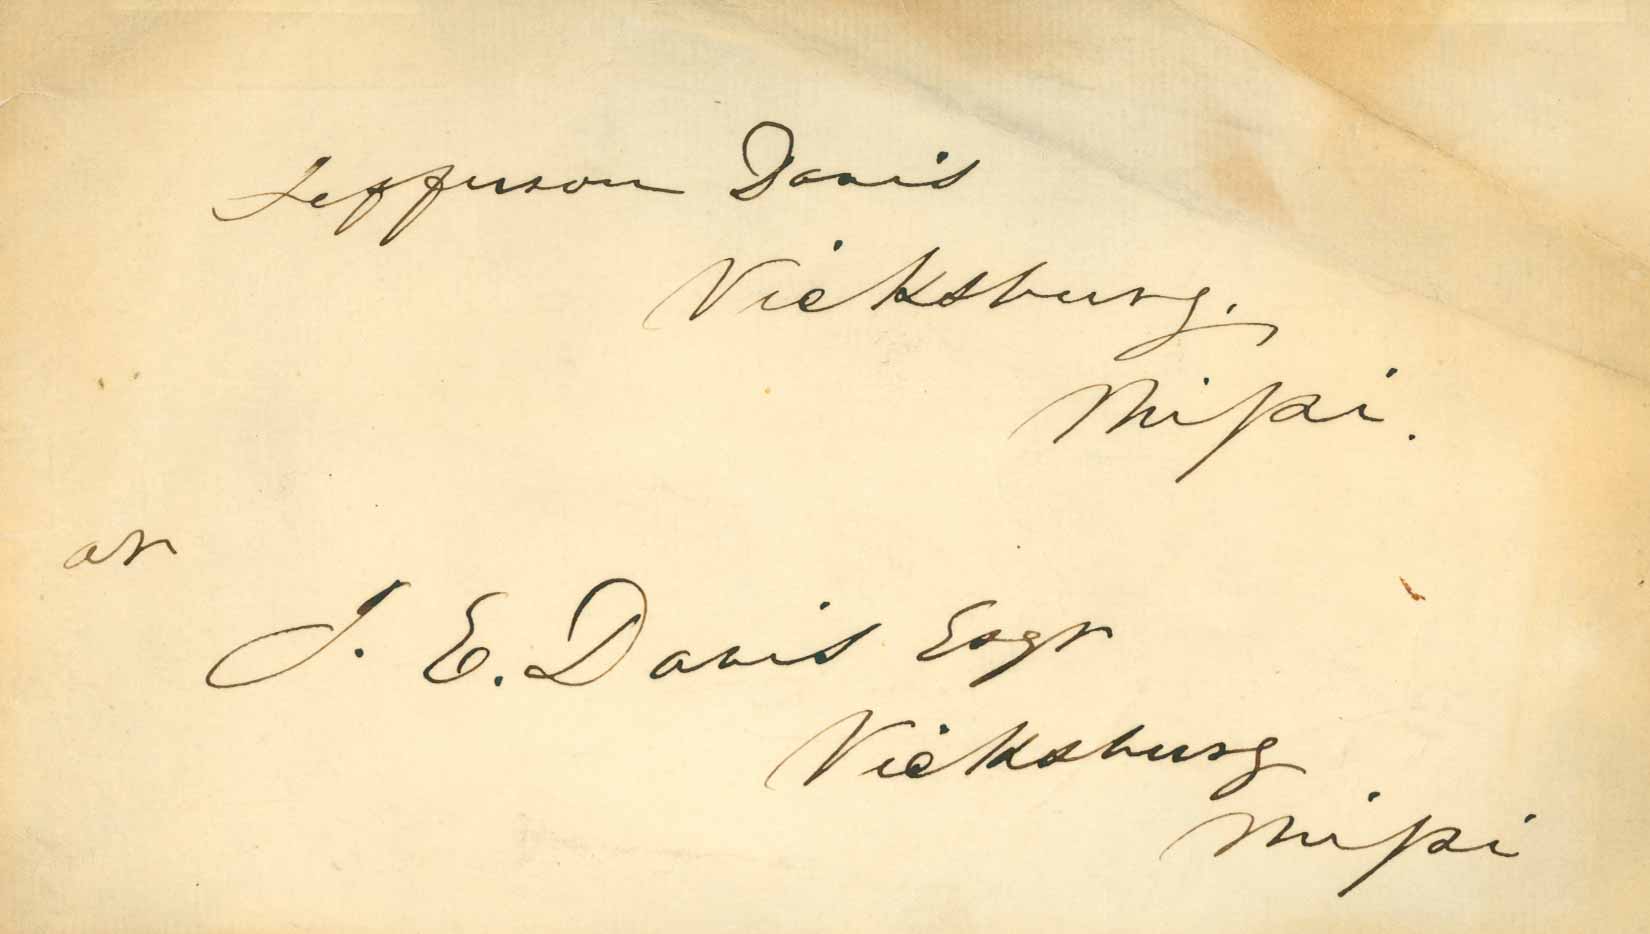 Jefferson Davis
Vicksburg.
Mipi.
or
J. E. Davis Esqr
Vicksburg
Mipi